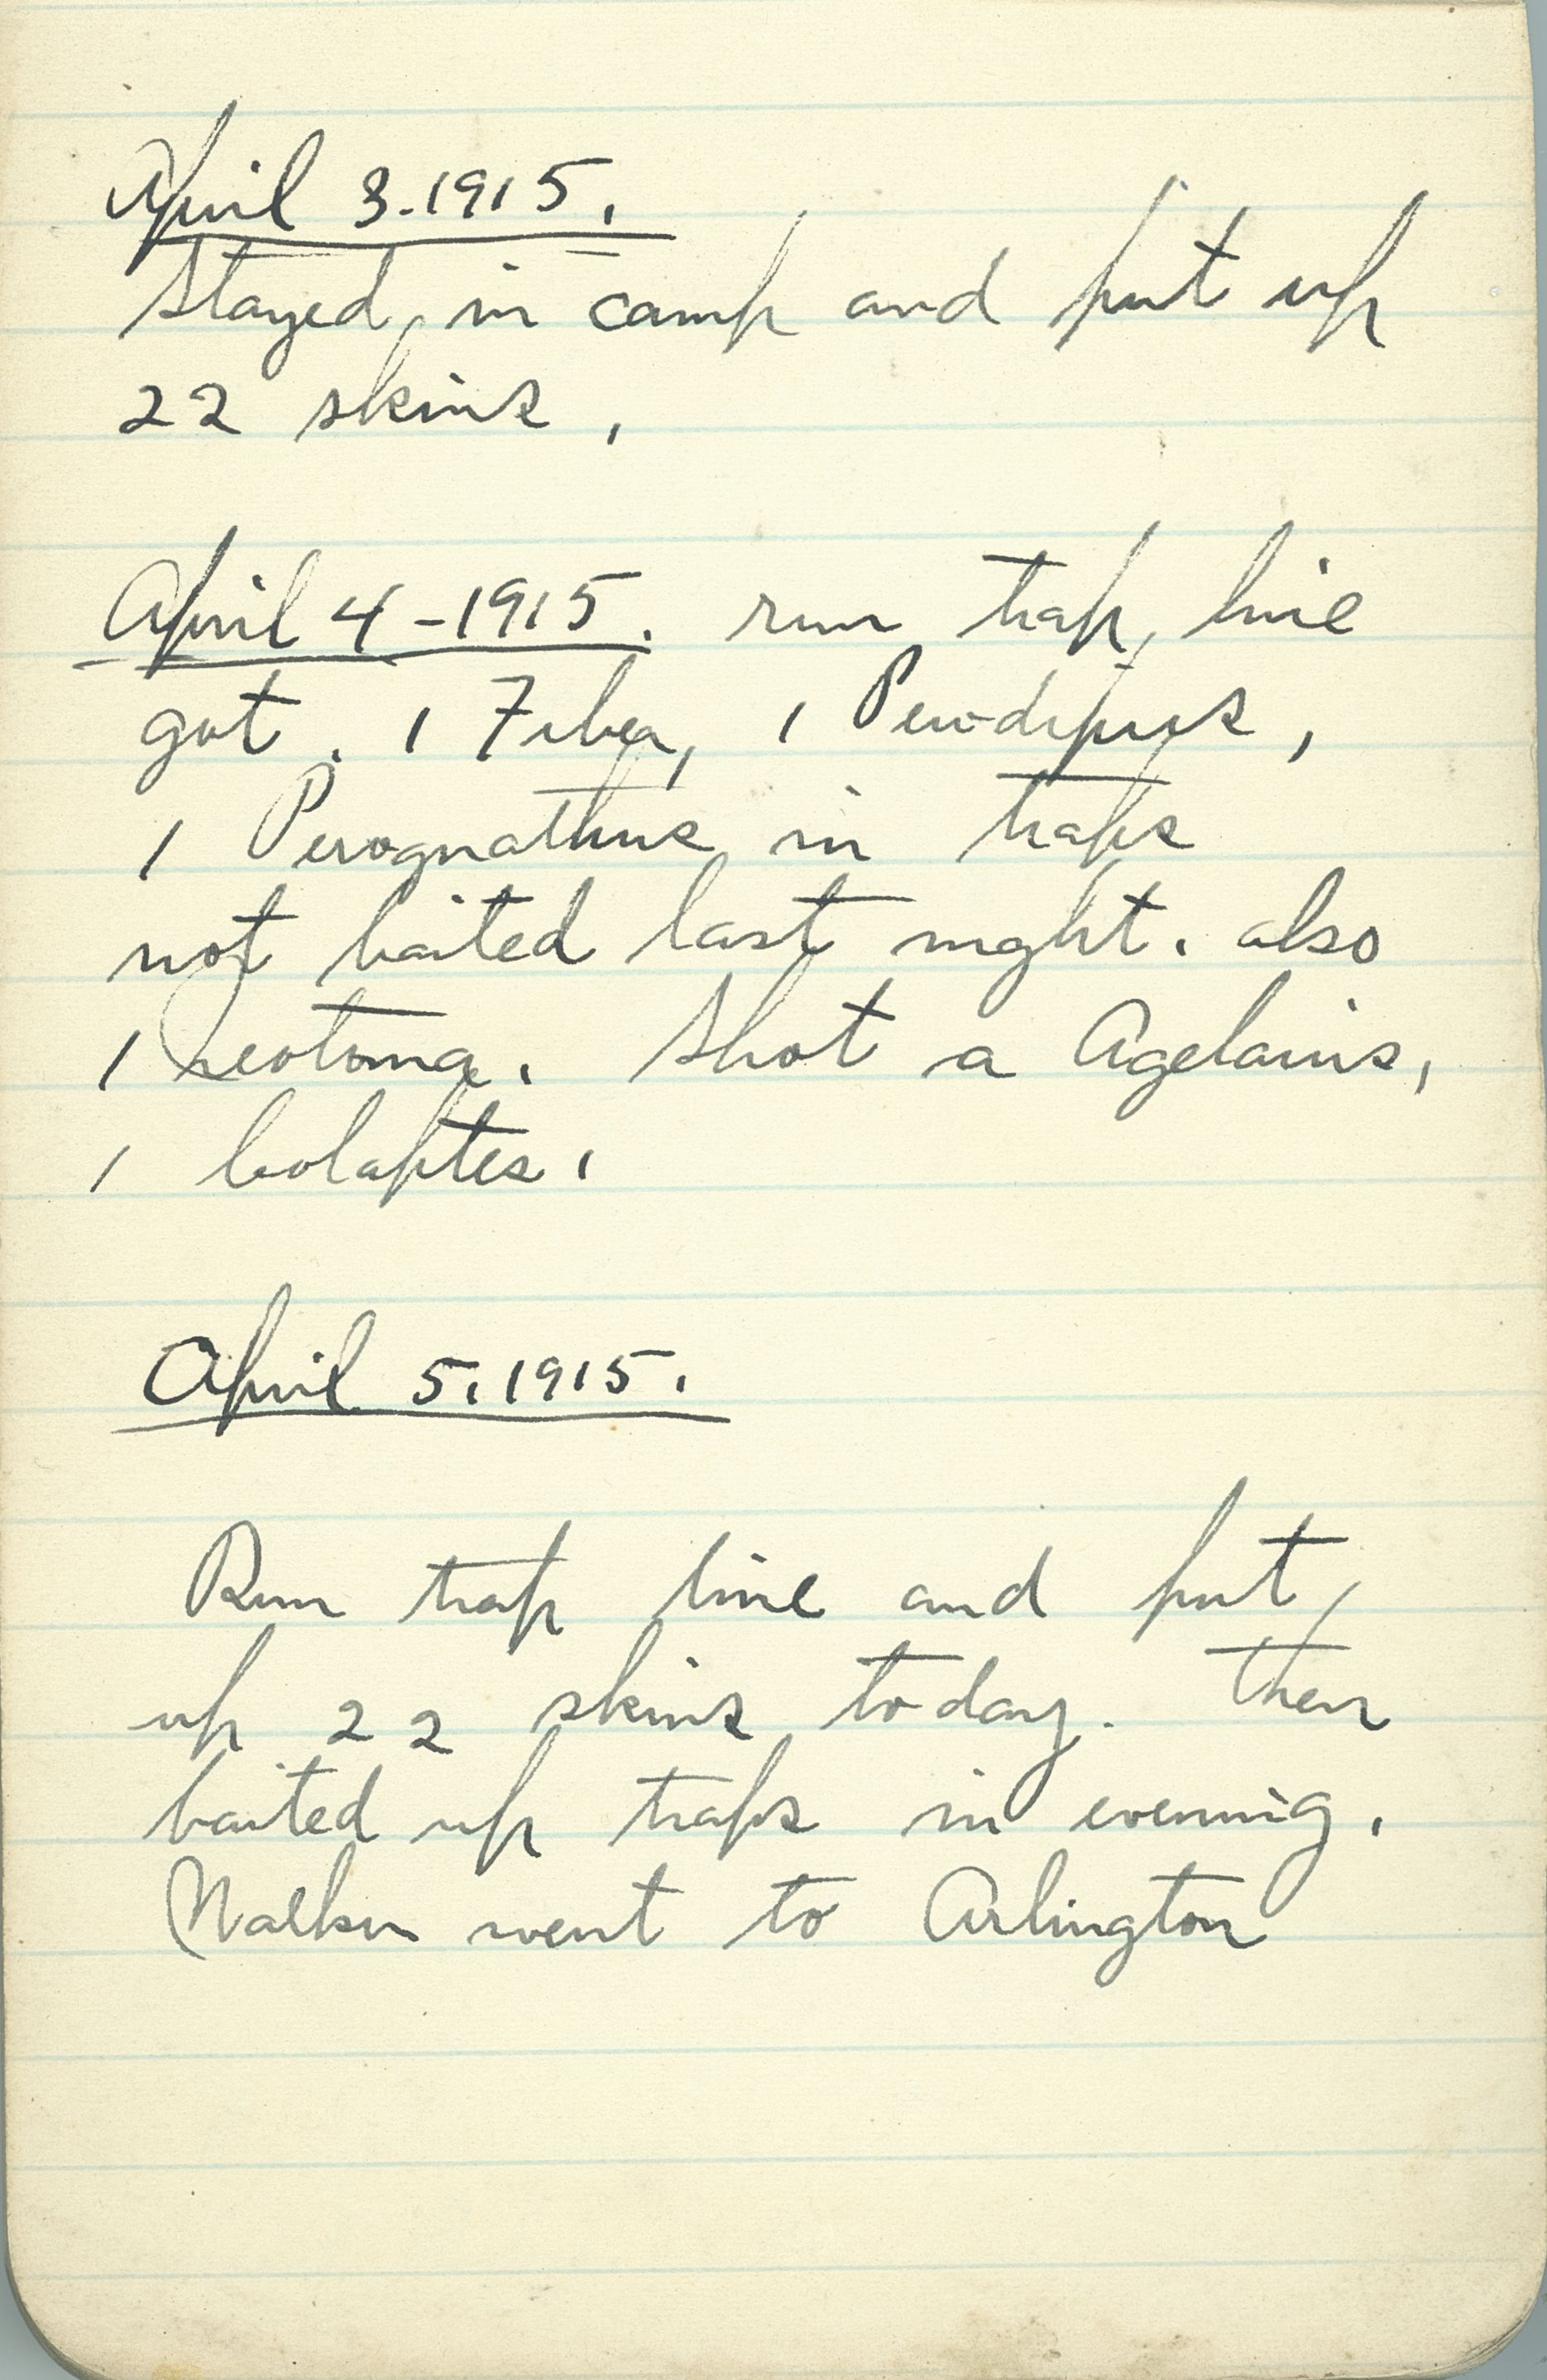 April 3.1915.
Stayed in camp and put up
22 skins.
April 4-1915. run trap line
got. 1 Fiber, 1 Perodipus,
1 Perognathus in traps
not baited last night. also
1 Neotoma. Shot a Agelaius,
1 Colaptes.
April 5.1915.
Run trap line and put
up 22 skins today. Then
baited up traps in evening.
Walker went to Arlington